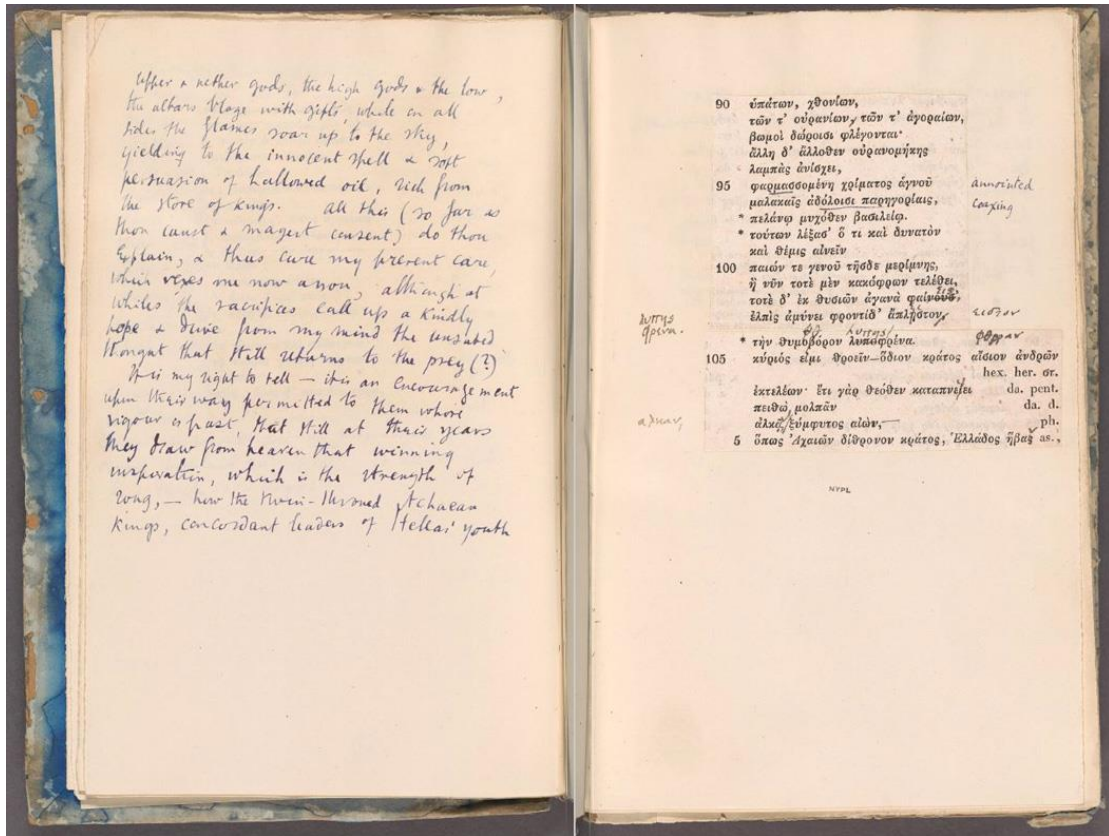 upper & nether gods, the high gods & the low,
the altars blaze with gifts, while on all
sides the flames soar up to the sky,
yielding to the innocent spell & soft
persuasion of hallowed oil, rich from
the store of kings. All this (so far as
thou canst & mayest consent) do thou
explain, & thus cure my present care,
which vexes me now anon, although at
whiles the sacrifices call up a kindly
hope & drive from my mind the unsated
thought that still returns to the prey (?)
It is my right to tell — it is an encouragement
upon their way permitted to them whose
vigour is past, that still at their years
they draw from heaven that winning
inspiration, which is the strength of
song, — how the twin-throned Achaean
Kings, concordant leaders of Hellas' youth
90 ὑπάτων, χθονίων,
τῶν τ' οὐρανίων, τῶν τ' ἀγοραίων,
βωμοὶ δώροισι φλέγονται·
ἄλλη δ' ἄλλοθεν οὐρανομήκης
λαμπὰς ἀνίσχει,
95 φαρμασσομένη χρίματος ἁγνοῦ annointed
μαλακαῖς ἀδόλοισι παρηγορίαις, coaxing
* πελάνῳ μυχόθεν βασιλείῳ.
* τούτων λέξασ' ὅ τι καὶ δυνατὸν
καὶ θέμις αἰνεῖν
100 παιών τε γενοῦ τῆσδε μερίμνης,
ἣ νῦν τοτὲ μὲν κακόφρων τελέθει,
τοτὲ δ' ἐκ θυσιῶν ἀγανὰ φαίνουσ'
ἐλπὶς ἀμύνει φροντίδ' ἄπληστον,
λυπης
φρενα.
* τὴν θυμοβόρον λυπόφρενα.
105 κύριός εἰμι θροεῖν—ὅδιον κράτος αἴσιον ἀνδρῶν
hex. her. σr.
ἐκτελέων· ἔτι γὰρ θεόθεν καταπνείει da. pent.
πειθώ, μολπᾶν da. d.
αλκαν, ἀλκᾷ ξύμφυτος αἰών,— ph.
5 ὅπως Ἀχαιῶν δίθρονον κράτος, Ἑλλάδος ἥβας as.,
NYPL